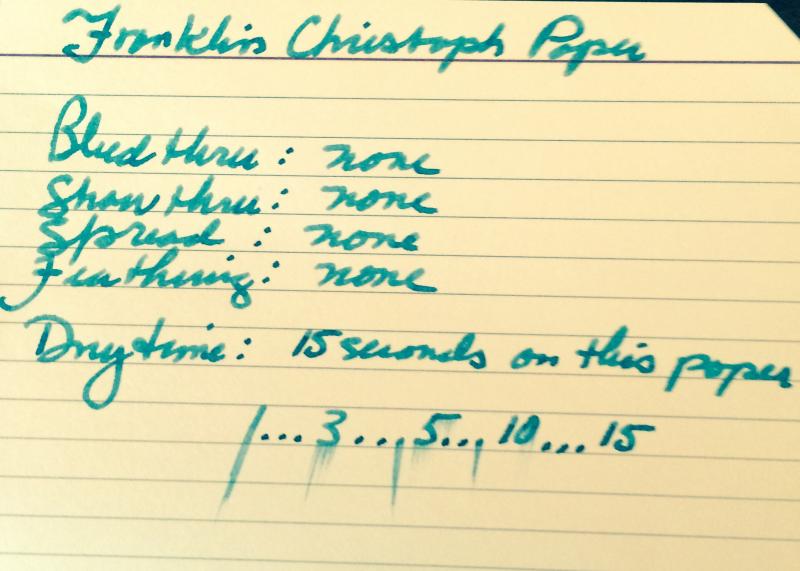 Franklin Christoph Paper
Bleed thru: none
Show thru: none
Spread: none
Feathering: none
Drytime: 15 seconds on this paper
1...3...5...10...15